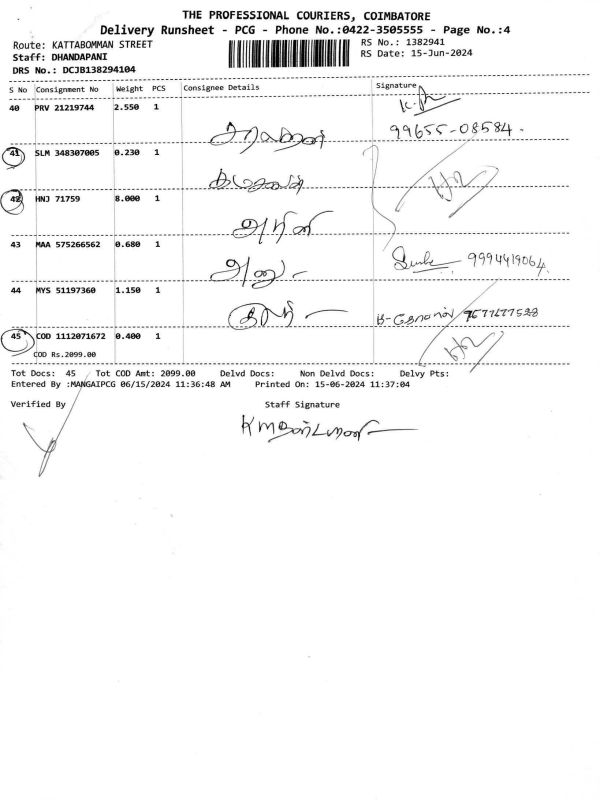 THE PROFESSIONAL COURIERS, COIMBATORE
Delivery Runsheet - PCG - Phone No.:0422-3505555 - Page No.:4
Route: KATTABOMMAN STREET
RS No.: 1382941
Staff: DHANDAPANI
RS Date: 15-Jun-2024
DRS No.: DCJB138294104
S No Consignment No Weight PCS Consignee Details Signature
40 PRV 21219744 2.550 1
99655-08584.
41 SLM 348307005 0.230 1
42 HNJ 71759 8.000 1
43 MAA 575266562 0.680 1
அனு
9994419064
44 MYS 51197360 1.150 1
45 COD 1112071672 0.400 1
COD Rs.2099.00
Tot Docs: 45 Tot COD Amt: 2099.00 Delvd Docs: Non Delvd Docs: Delvy Pts:
Entered By :MANGAIPCG 06/15/2024 11:36:48 AM Printed On: 15-06-2024 11:37:04
Verified By Staff Signature